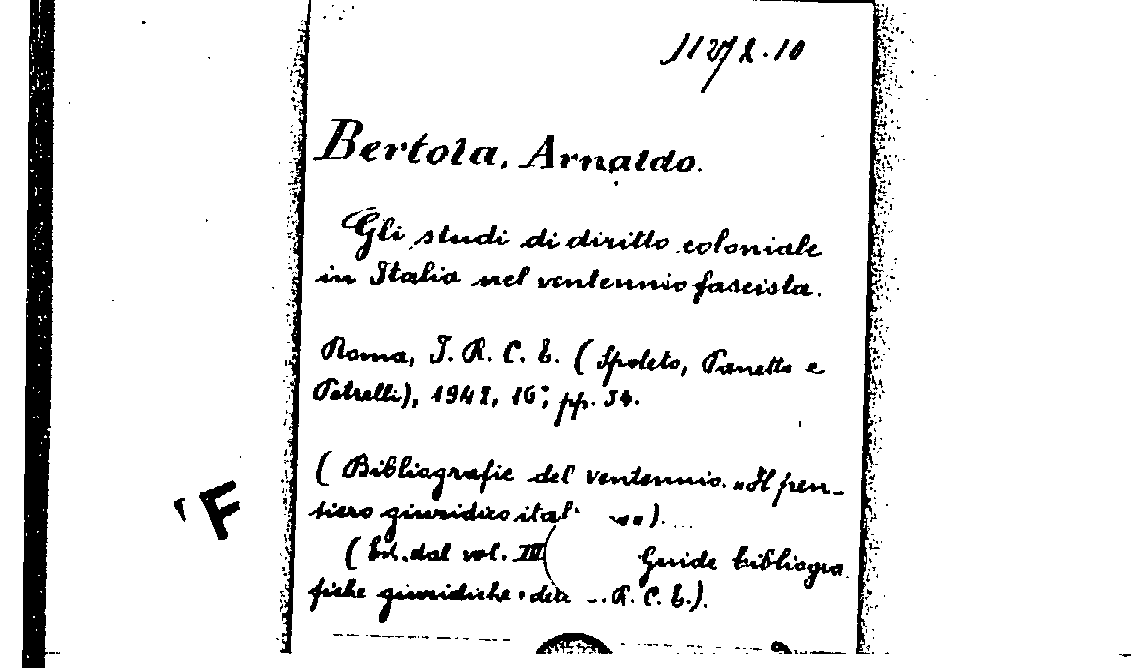 Bertola, Arnaldo.
Gli studi di diritto coloniale
in Italia nel ventennio fascista.
Roma, I. R. C. E. (Spoleto, Panetto e
Petrelli), 1941, 16°, pp. 34.
(Bibliografie del ventennio. "Il pen-
siero giuridico ital
(Estr. dal vol. III Guide bibliogra
fiche giuridiche R. C. E.).
'F